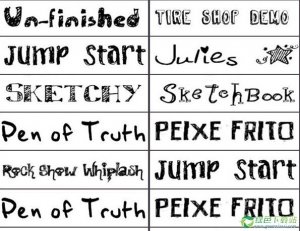 Un-finished
TIRE SHOP DEMO
Jump Start
Julies
SKETCHY
SketchBook
Pen of Truth
PEIXE FRITO
Rock Show Whiplash
Jump Start
Pen of Truth
PEIXE FRITO